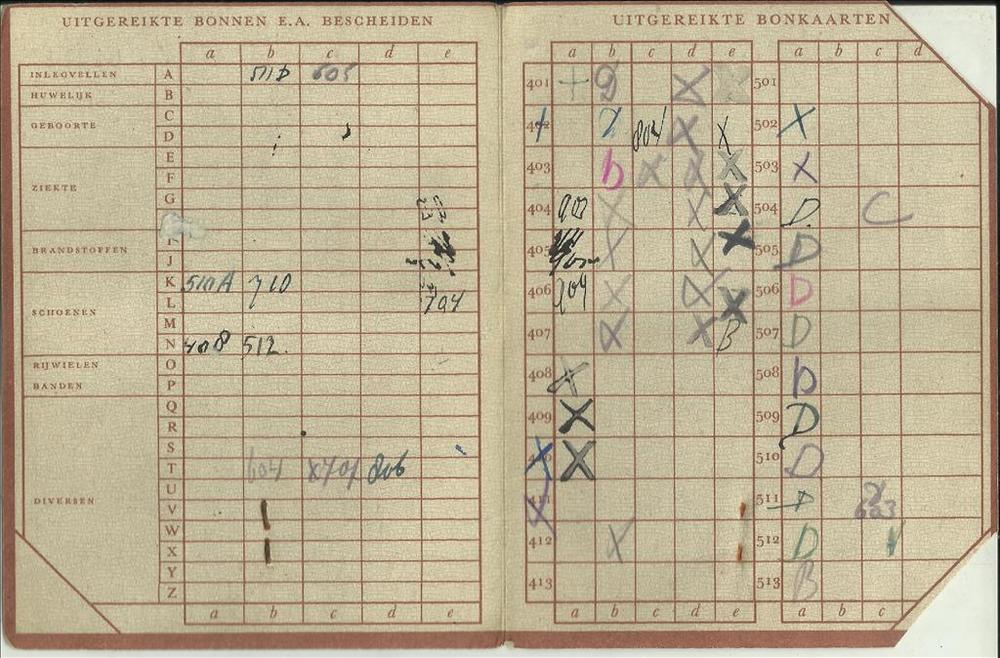 UITGEREIKTE BONNEN E.A. BESCHEIDEN
a b c d e
INLEGVELLEN A 511D 605
HUWELIJK B
GEBOORTE C
D
E
ZIEKTE F
G
BRANDSTOFFEN
J
K 510A 710
SCHOENEN L 704
M
N 408 512.
RIJWIELEN O
BANDEN P
Q
R
S
T 604 X701 806
U
DIVERSEN V
W
X
Y
Z
a b c d e
UITGEREIKTE BONKAARTEN
a b c d e a b c d
401 + D X 501
X 804 X X 502 X
403 D X X X 503 X
404 903 X X X 504 D. C
405 X X X 505 D
406 904 X X X 506 D
407 X X B 507 D
408 X 508 D
409 X 509 D
X X 510 D
X 511 D 603
412 X 512 D
413 513 B
a b c d e a b c